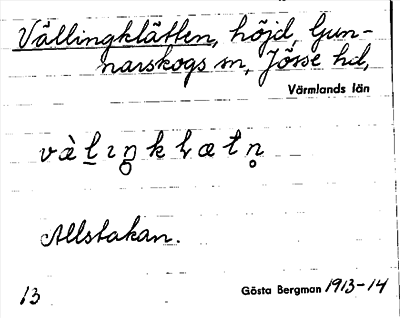 Vällingklätten, höjd, Gun-
narskogs sn, Jösse hd,
Värmlands län
vàlıŋkLætn̥
Allstakan.
13 Gösta Bergman 1913-14